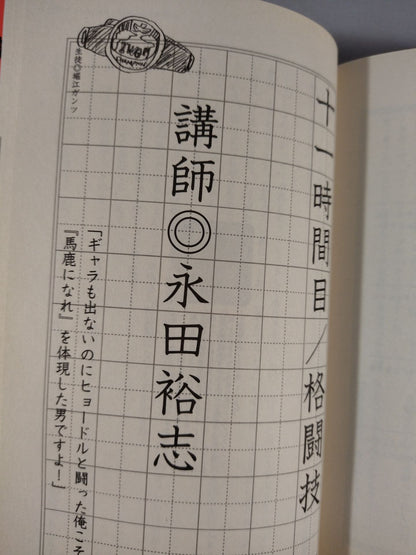 十一時間目／格闘技
講師◎永田裕志
「ギャラも出ないのにヒョードルと闘った俺こそ
『馬鹿になれ』を体現した男ですよ！」
生徒◎堀江ガンツ
CHAMPION